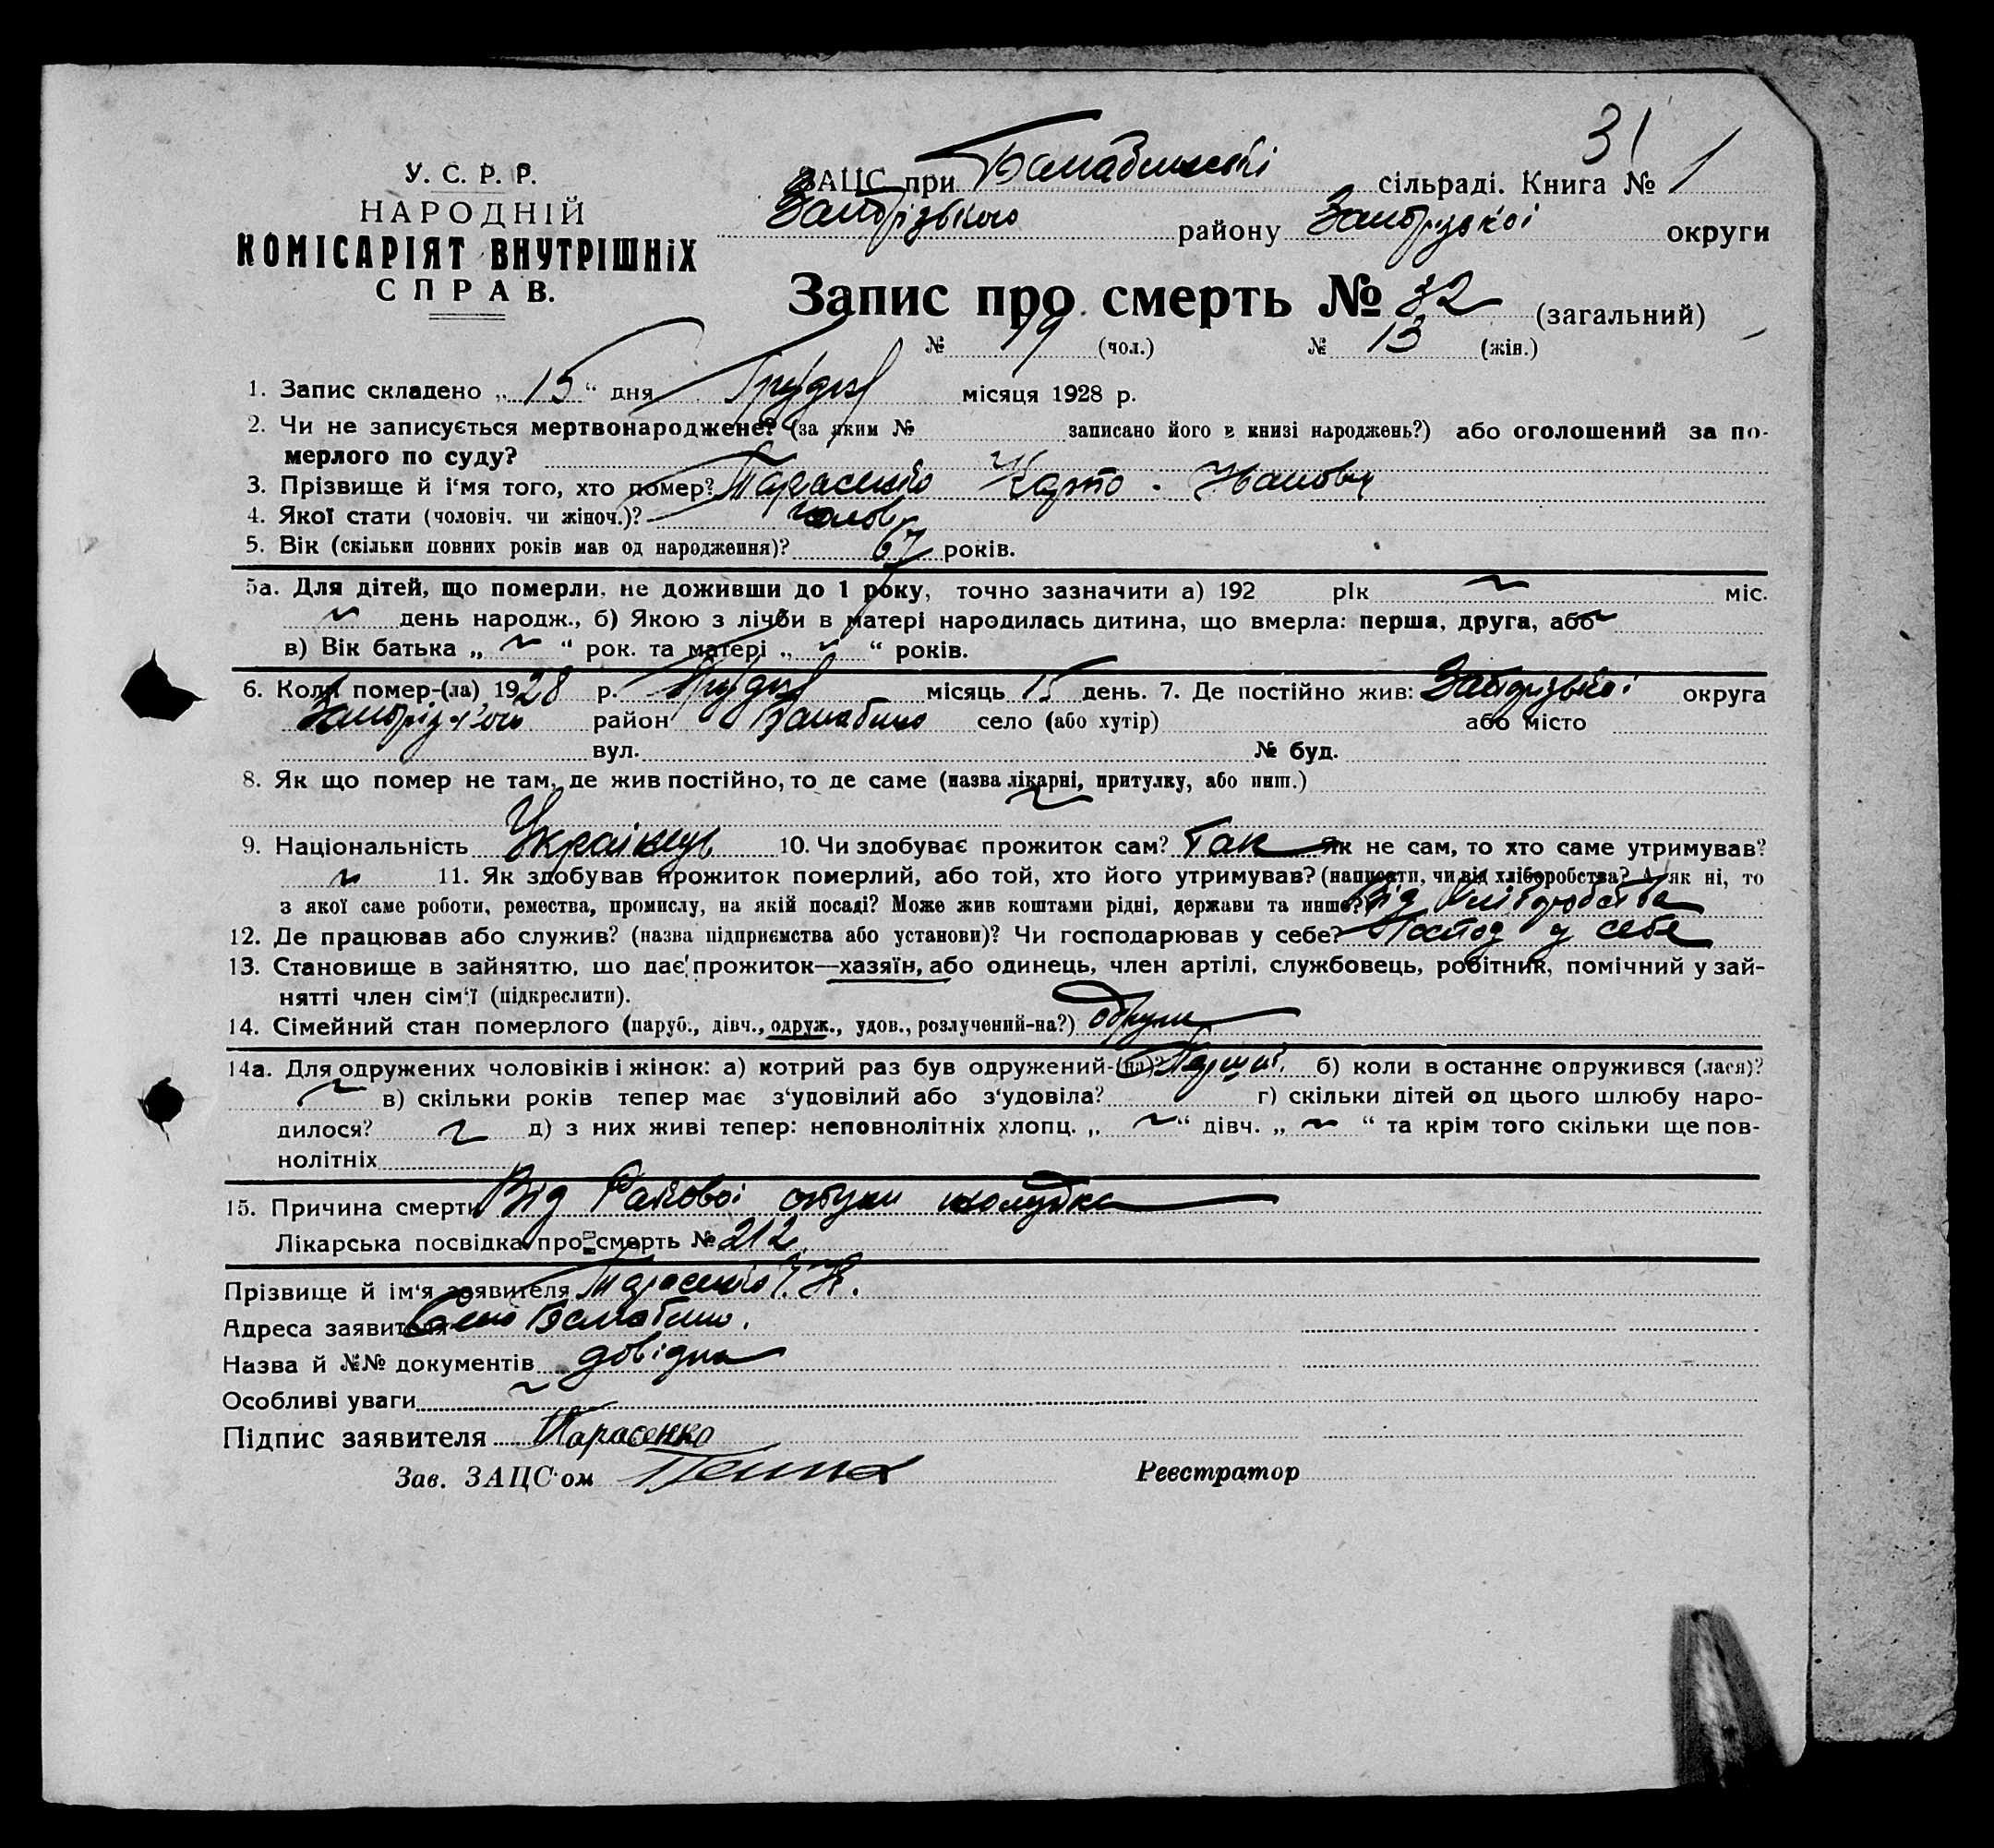 31
У. С. Р. Р.
НАРОДНІЙ
КОМІСАРІЯТ ВНУТРІШНІХ
СПРАВ.
ЗАЦС при сільраді. Книга № 1
Запорізького району Запорізької округи
Запис про смерть № 32 (загальний)
№ 19 (чол.) № 13 (жін.)
1. Запис складено „ 15 “ дня Грудня місяця 1928 р.
2. Чи не записується мертвонароджене? (за яким № записано його в книзі народжень?) або оголошений за по-
мерлого по суду?
3. Прізвище й і'мя того, хто помер? Тарасенко Іванович
4. Якої стати (чоловіч. чи жіноч.)? чолов.
5. Вік (скільки повних років мав од народження)? 67 років.
5а. Для дітей, що померли, не доживши до 1 року, точно зазначити а) 192 рік ~ міс.
~ день народж., б) Якою з лічби в матері народилась дитина, що вмерла: перша, друга, або ~
в) Вік батька „ ~ “ рок. та матері „ ~ “ років.
6. Коли помер-(ла) 1928 р. Грудня місяць 15 день. 7. Де постійно жив: Запорізької округа
Запорізького район Балабино село (або хутір) або місто
вул. № буд.
8. Як що помер не там, де жив постійно, то де саме (назва лікарні, притулку, або инш.)
~
9. Національність Українець 10. Чи здобуває прожиток сам? Так Як не сам, то хто саме утримував?
~ 11. Як здобував прожиток померлий, або той, хто його утримував? (написати, чи від хліборобства? А як ні, то
з якої саме роботи, ремества, промислу, на якій посаді? Може жив коштами рідні, держави та инше? Від хліборобства
12. Де працював або служив? (назва підприємства або установи)? Чи господарював у себе? Господ у себе
13. Становище в зайняттю, що дає прожиток—хазяїн, або одинець, член артілі, службовець, робітник, помічний у зай-
нятті член сім'ї (підкреслити).
14. Сімейний стан померлого (паруб., дівч., одруж., удов., розлучений-на?) одруж
14а. Для одружених чоловіків і жінок: а) котрий раз був одружений-(на)? Перший б) коли в останнє одружився (лася)?
~ в) скільки років тепер має з'удовілий або з'удовіла? г) скільки дітей од цього шлюбу наро-
дилося? ~ д) з них живі тепер: неповнолітніх хлопц. „ ~ “ дівч. „ ~ “ та крім того скільки ще пов-
нолітніх
15. Причина смерти Від Ракової шолудка
Лікарська посвідка про смерть № 212
Прізвище й ім'я заявителя Тарасенко
Адреса заявителя Село Балабино.
Назва й №№ документів довідка
Особливі уваги ~
Підпис заявителя Тарасенко
Зав. ЗАЦС'ом Реєстратор